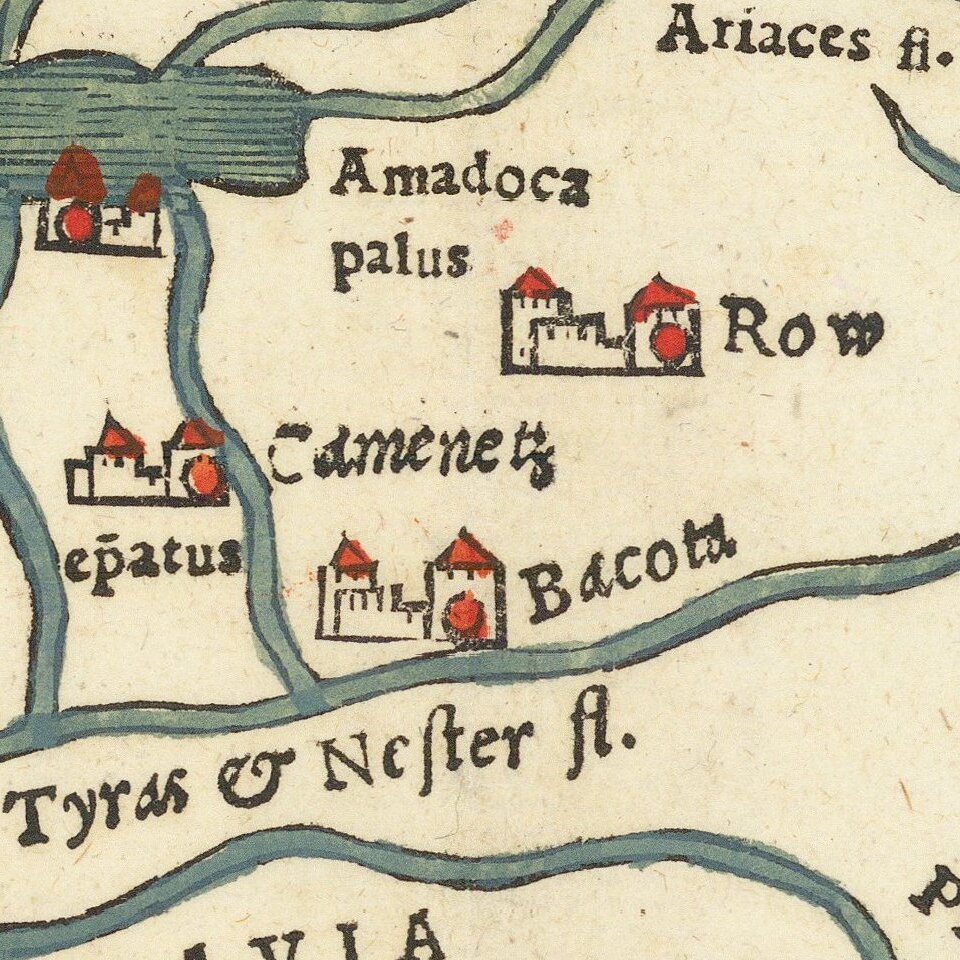 Ariaces fl.
Amadoca
palus
Row
Camenetz
ep̄atus
Bacota
Tyras & Neſter fl.
AVIA